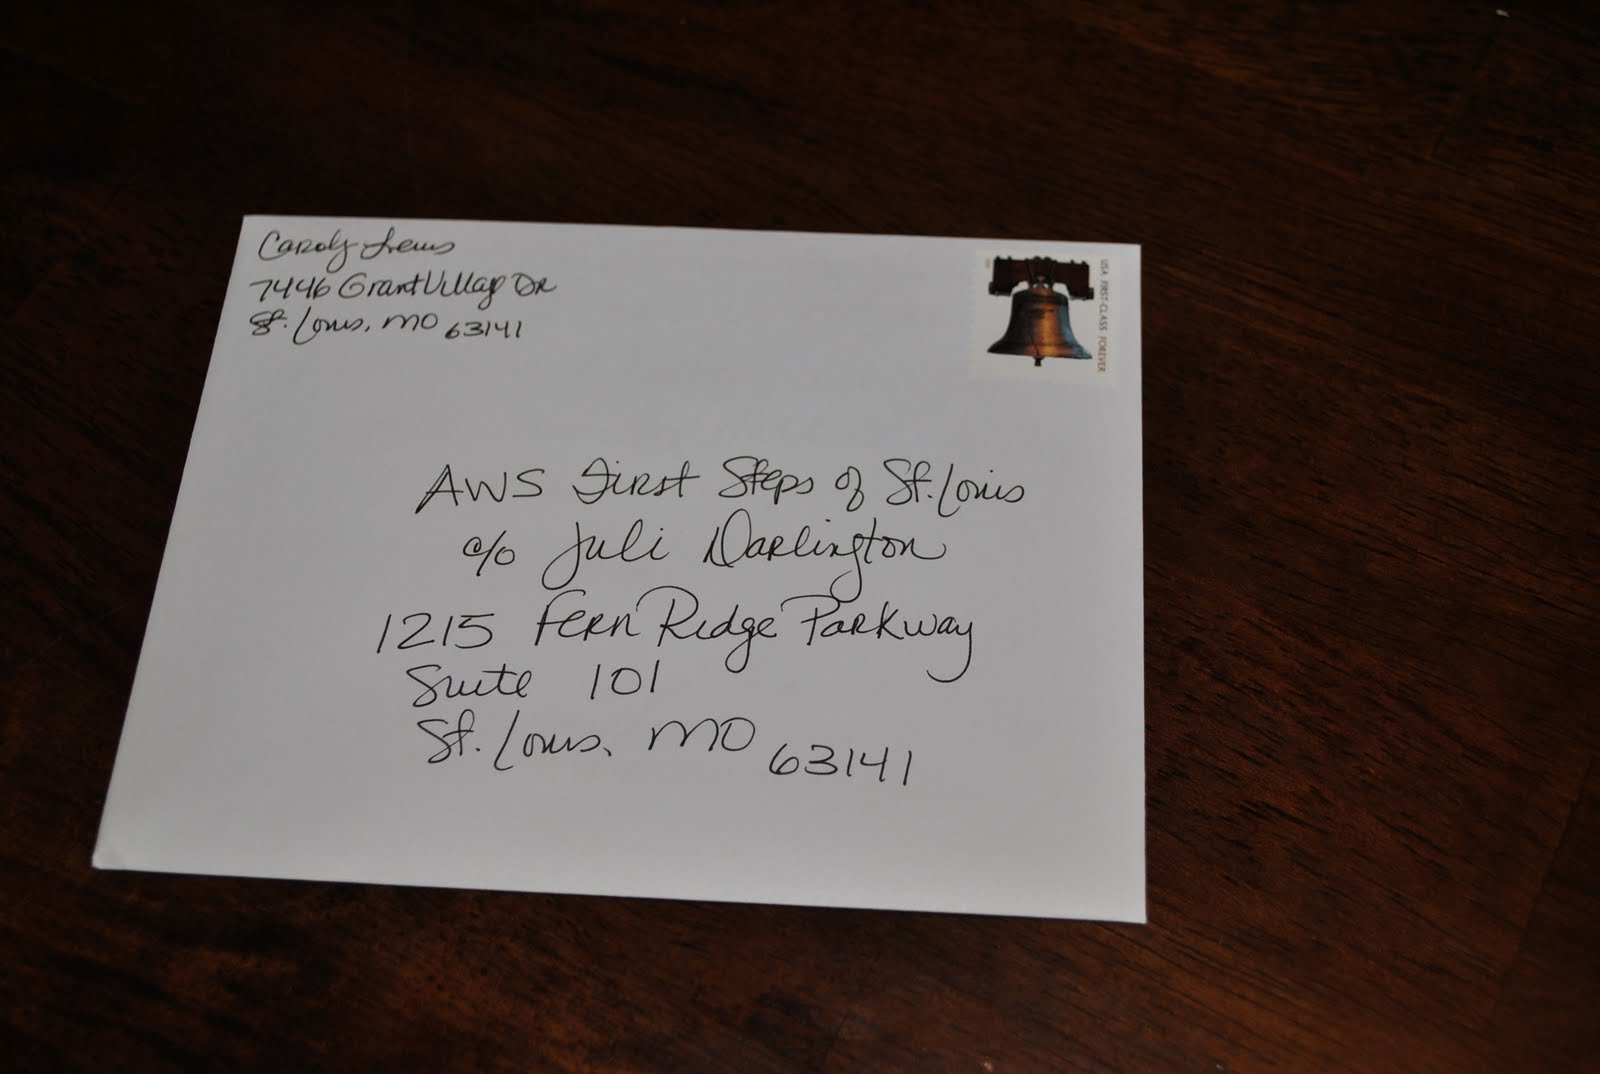 Caroly Lewis
7446 Grant Village DR
St. Louis, MO 63141
USA FIRST-CLASS FOREVER
AWS First Steps of St. Louis
c/o Juli Darlington
1215 Fern Ridge Parkway
Suite 101
St. Louis, MO 63141